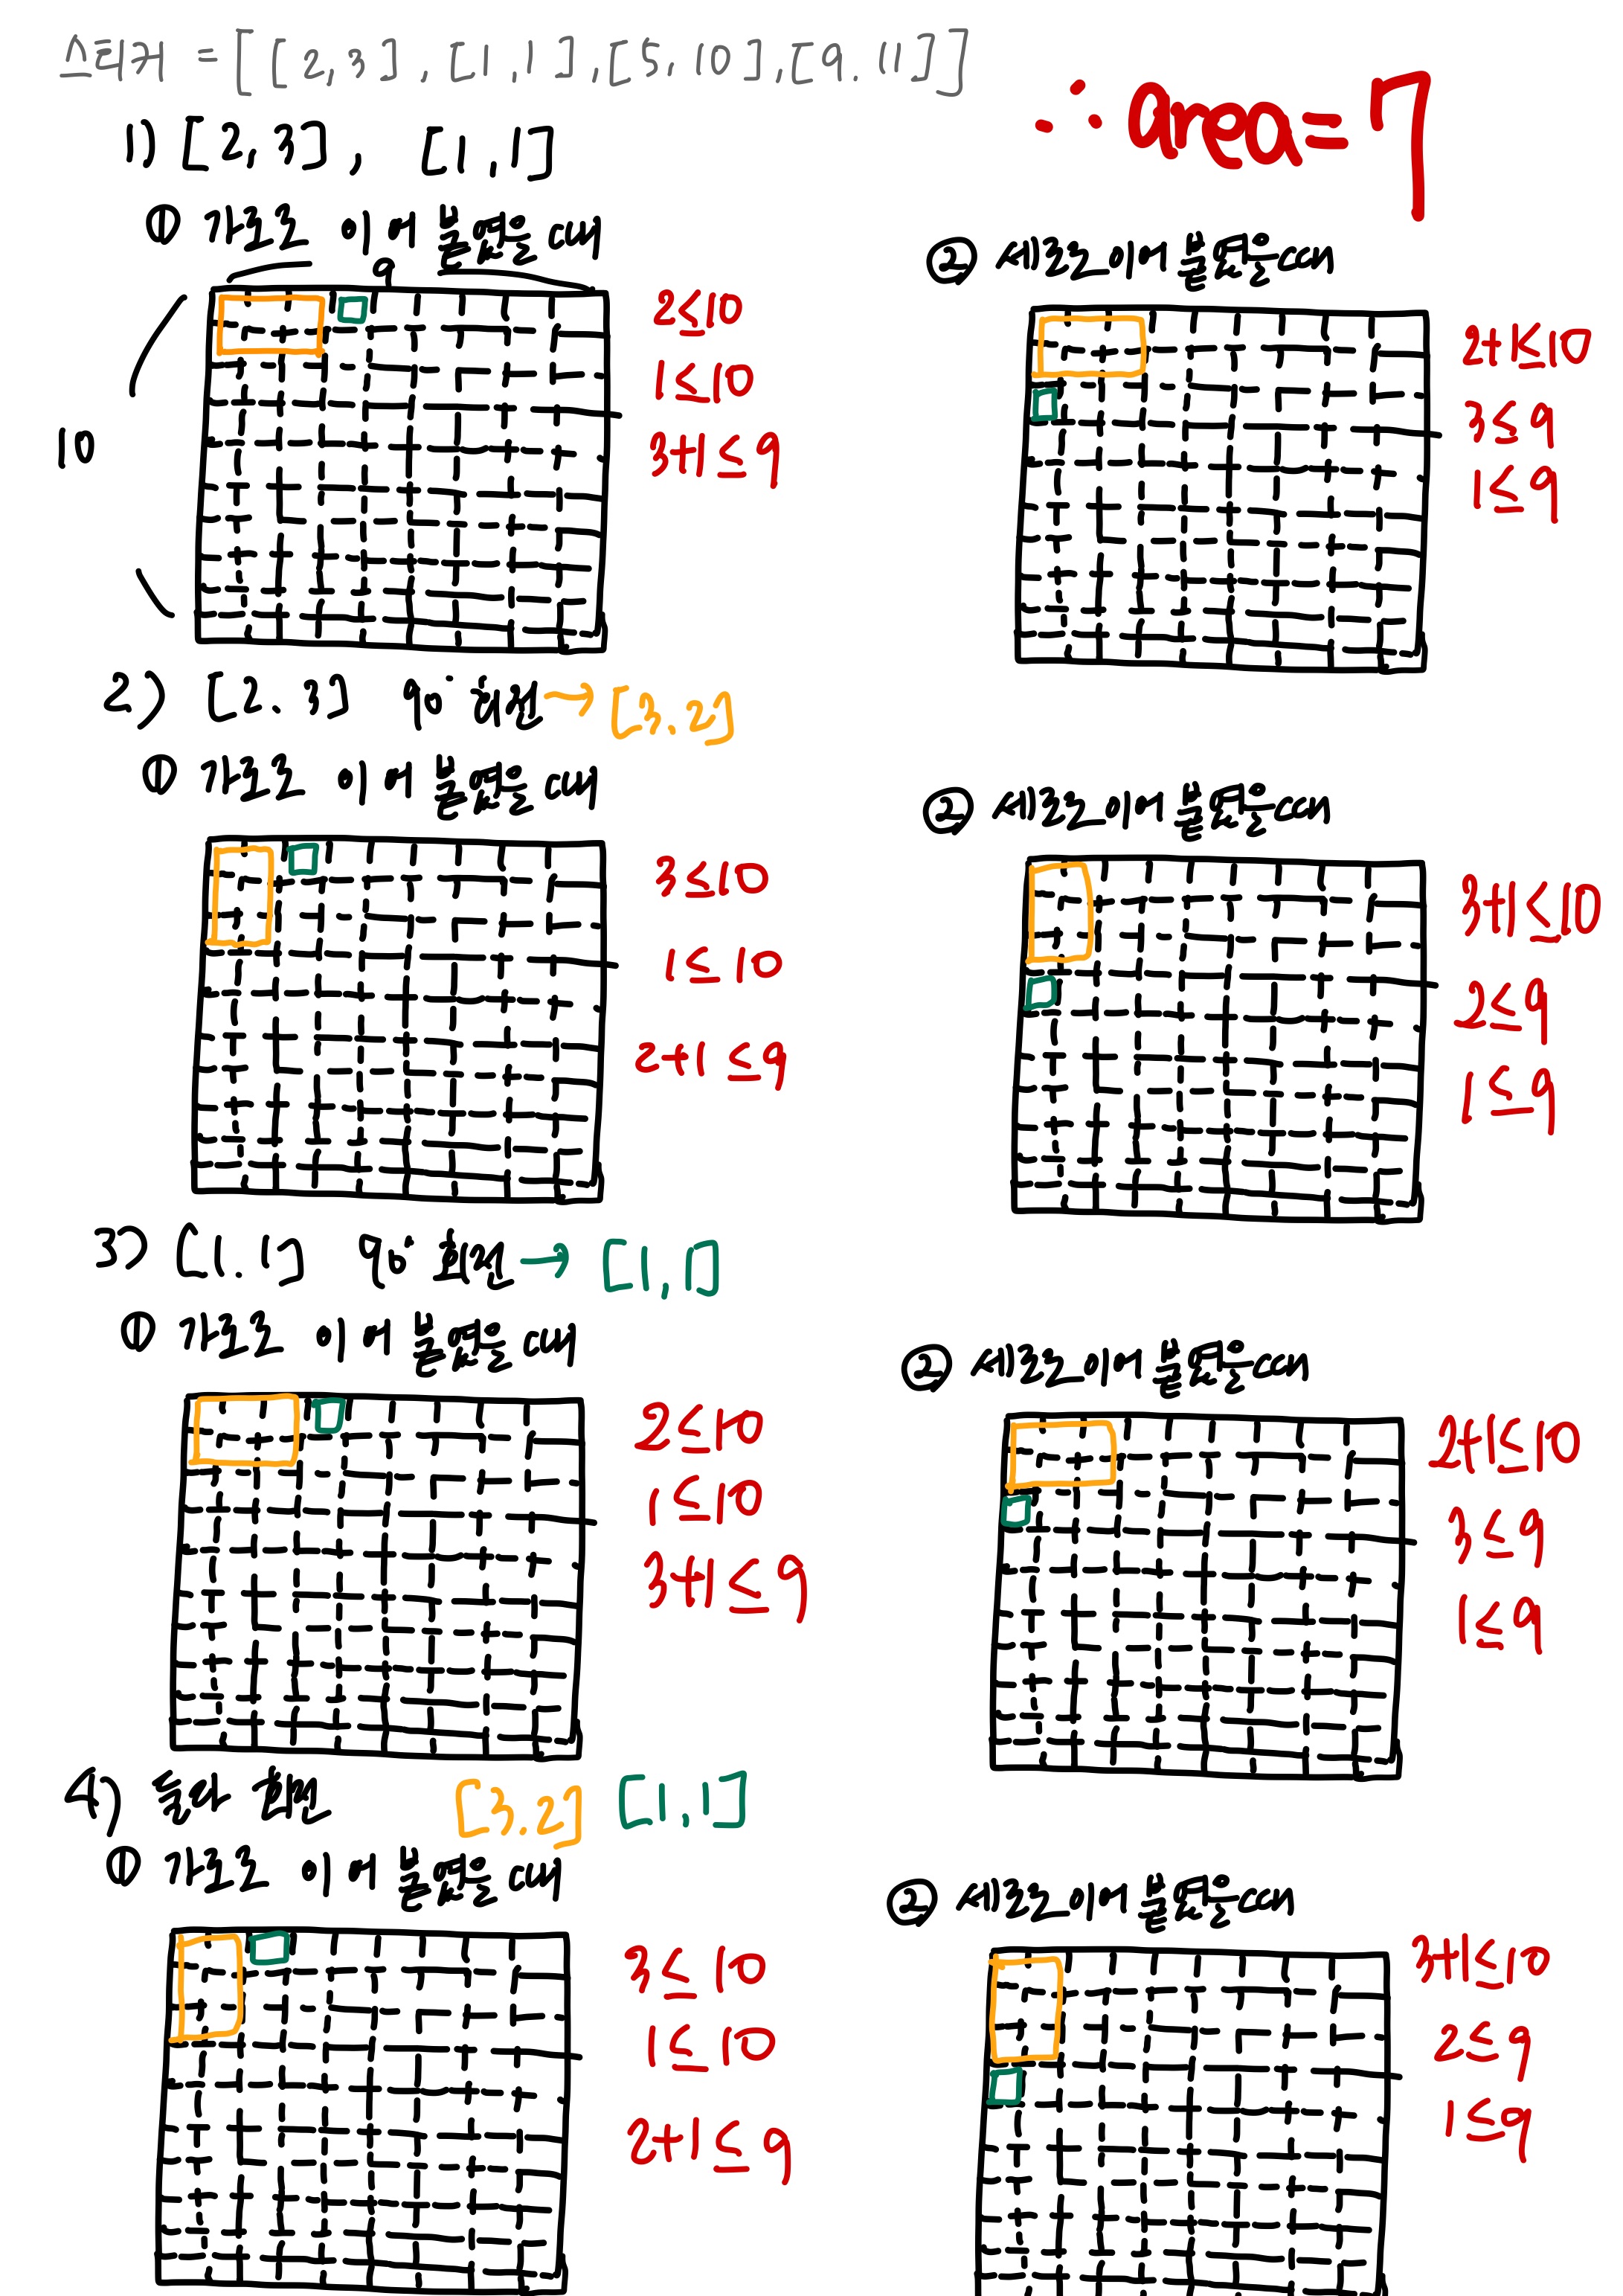 스티커 = [[2,3],[1,1],[5,10],[9.11]]
∴ area=7
1) [2,3], [1,1]
① 가로로 이어 붙였을 때
9
10
2≤10
1≤10
3+1≤9
② 세로로 이어 붙였을 때
2+1≤10
3≤9
1≤9
2) [2.3] 90° 회전 → [3.2]
① 가로로 이어 붙였을 때
3≤10
1≤10
2+1≤9
② 세로로 이어 붙였을 때
3+1≤10
2≤9
1≤9
3) [1.1] 90° 회전 → [1,1]
① 가로로 이어 붙였을 때
2≤10
1≤10
3+1≤9
② 세로로 이어 붙였을 때
2+1≤10
3≤9
1≤9
4) 둘다 회전 [3.2] [1,1]
① 가로로 이어 붙였을 때
3≤10
1≤10
2+1≤9
② 세로로 이어 붙였을 때
3+1≤10
2≤9
1≤9